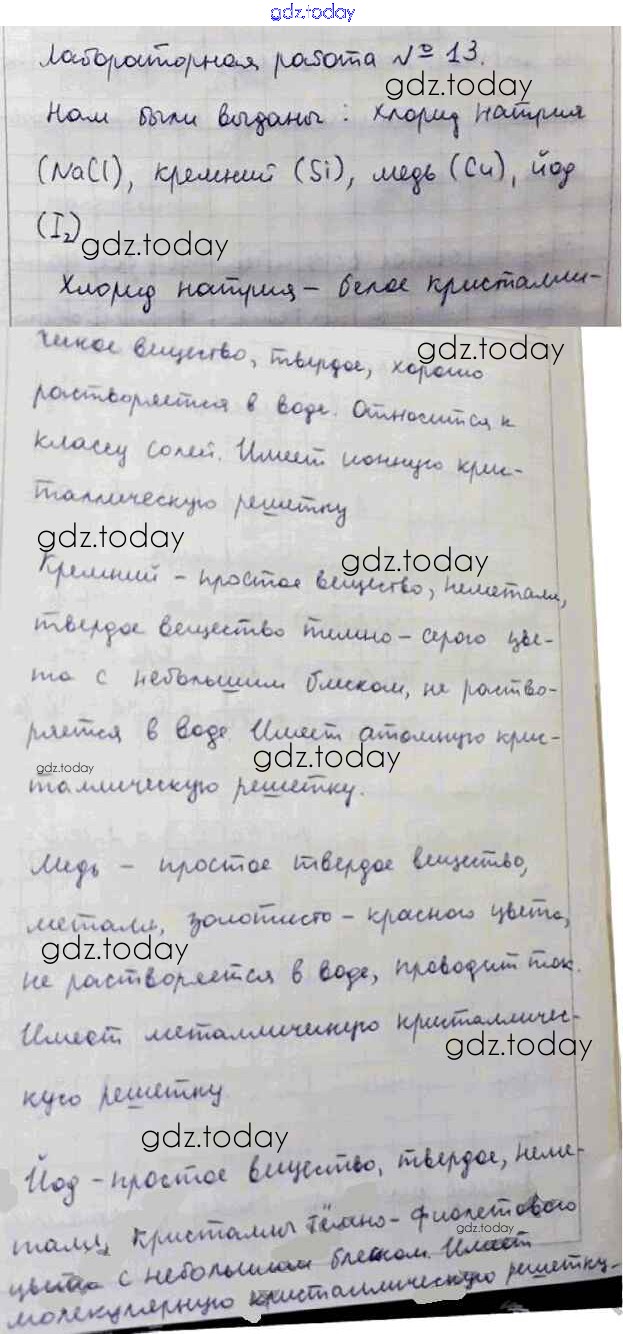 gdz.today
Лабораторная работа № 13.
gdz.today
Нам были выданы: хлорид натрия
(NaCl), кремний (Si), медь (Cu), йод
(I₂)
gdz.today
Хлорид натрия – белое кристалли-
gdz.today
ческое вещество, твердое, хорошо
растворяется в воде. Относится к
классу солей. Имеет ионную крис-
таллическую решетку
gdz.today
gdz.today
Кремний – простое вещество, неметалл,
твердое вещество темно-серого цве-
та с небольшим блеском, не раство-
ряется в воде. Имеет атомную крис-
gdz.today
gdz.today
таллическую решетку.
Медь – простое твердое вещество,
металл, золотисто-красного цвета,
gdz.today
не растворяется в воде, проводит ток.
Имеет металлическую кристалличес-
gdz.today
кую решетку.
gdz.today
Йод – простое вещество, твердое, неме-
талл, кристаллы тёмно-фиолетового
gdz.today
цвета с небольшим блеском. Имеет
молекулярную кристаллическую решетку.